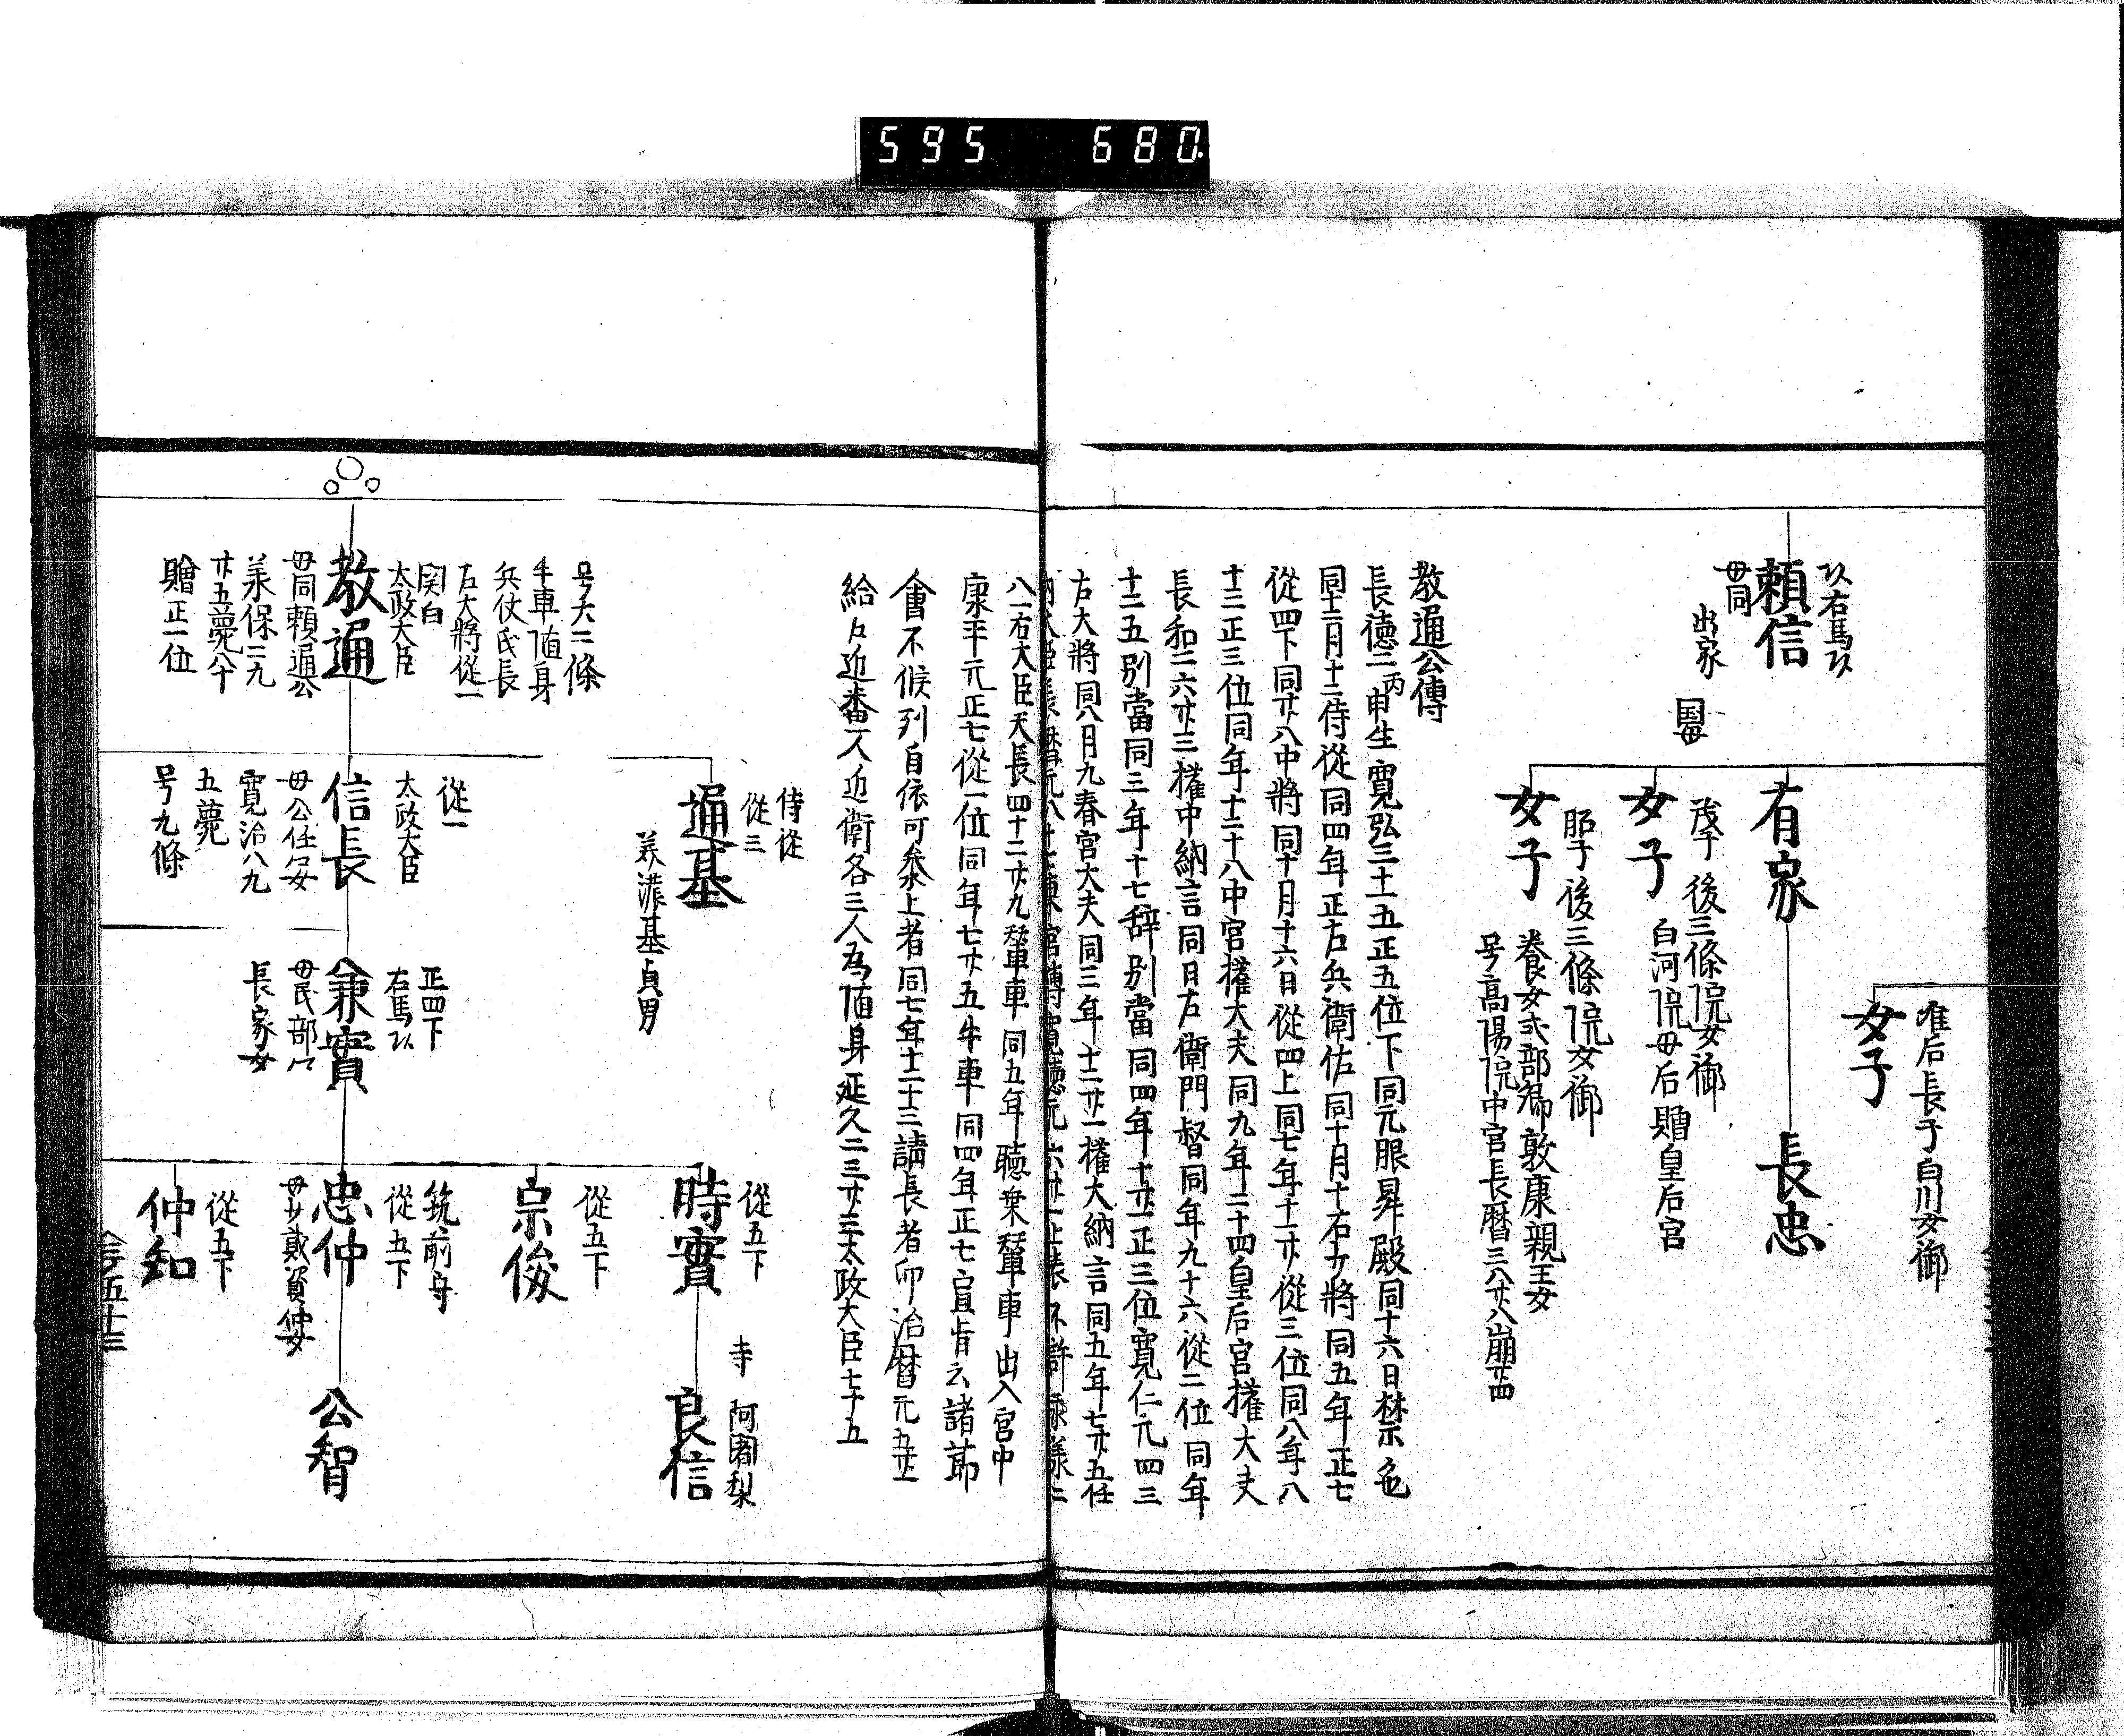 595 680
以右馬以
頼信
母同
出家
国母
有家
長忠
准后長子白川女御
女子
茂子後三條院女御
女子
白河院母后贈皇后宮
昭子後三條院女御
女子
養女式部卿敦康親王女
号高陽院中宮長暦三八廿八崩廿四
教通公傳
長徳二丙申生寛弘三十五正五位下同元服昇殿同十六日禁色
同十二月十二侍從同四年正右兵衛佐同十月十右少將同五年正七
從四下同廿八中將同十月十六日從四上同七年十一廿從三位同八年八
十三正三位同年十二十八中宮權大夫同九年二十四皇后宮權大夫
長和二六廿三權中納言同日左衛門督同年九十六從二位同年
十二五別當同三年十七辞別當同四年十廿一正二位寛仁元四三
左大將同八月九春宮大夫同三年十二廿一權大納言同五年七廿五任
八一右大臣天長四十二廿九輦車同五年聴乗輦車出入宮中
康平元正七從一位同年七廿五牛車同四年正七宣旨云諸節
會不候列自依可参上者同七年十二十三請長者印治暦元五廿二
給左近番一人近衛各三人為随身延久二三廿三太政大臣七十五
号大二條
牛車随身
兵仗氏長
左大將從一
関白
太政大臣
教通
母同頼通公
承保二九
廿五薨八十
贈正一位
侍從
從三
通基
美濃基貞男
從一
太政大臣
信長
母公任公女
寛治八九
五薨
号九條
正四下
右馬以
兼實
母民部以
長家女
從五下
時實
寺 阿闍梨
良信
從五下
宗俊
筑前守
從五下
忠仲
母少貮資仲女
公智
從五下
仲知